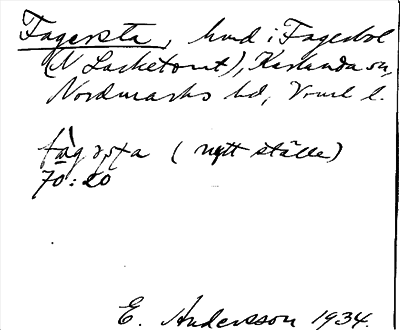 Fagersta, hmd i Fagerbol
(N Lacketomt), Karlanda sn,
Nordmarks hd, Vrml l.
fàgəṣṭa (nytt ställe)
70:20
E. Andersson 1934.